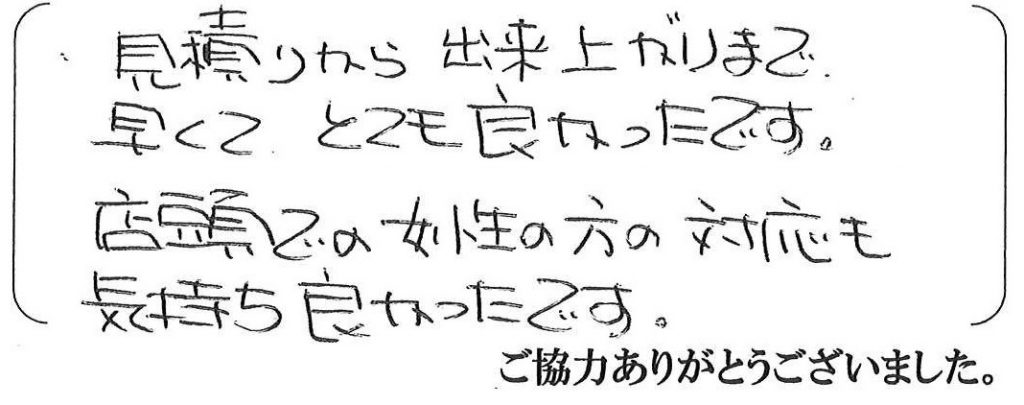 見積りから 出来上がりまで
早くて とても良かったです。
店頭での女性の方の対応も
気持ち良かったです。
ご協力ありがとうございました。